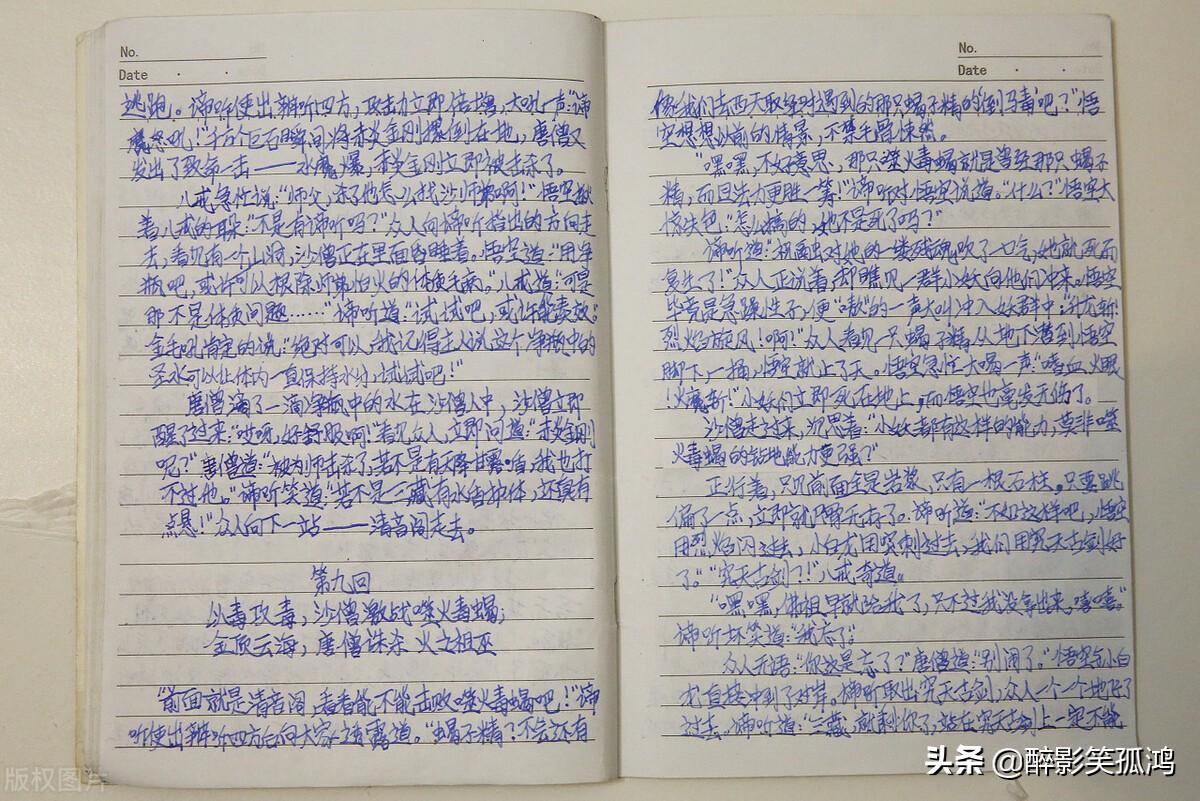 No.
Date
逃跑。谛听使出辨听四方,攻击力立即倍增,大吼一声:“谛
听怒吼!”千万个巨石瞬间将赤炎金刚撂倒在地,唐僧又
发出了致命一击——水魔爆,赤炎金刚立即被击杀了。
八戒急忙说:“师父,杀了他怎么找沙师弟啊!”悟空揪
着八戒的耳朵:“不是有谛听吗?”众人向谛听指出的方向走
去,看见有一个山洞,沙僧正在里面昏睡着。悟空道:“用净
瓶吧,或许可以根除师弟怕火的体质毛病。”八戒道:“可是
那不是体质问题……”谛听道:“试试吧,或许能奏效。”
金毛吼肯定的说:“绝对可以,我记得主人说这个净瓶中的
圣水可以让体内一直保持水分,试试吧!”
唐僧滴了一滴净瓶中的水在沙僧人中,沙僧立即
醒了过来:“哎呀,好舒服啊!”看见众人,立即问道:“赤炎金刚
呢?”唐僧道:“被为师击杀了,若不是有天降甘露盾,我也打
不过他。”谛听笑道:“若不是三藏有水的神体,还真有
点悬!”众人向下一站——清音阁走去。
第九回
以毒攻毒,沙僧激战噬火毒蝎;
金顶云海,唐僧诛杀火之祖巫
“前面就是清音阁,看看能不能击败噬火毒蝎吧!”谛
听使出辨听四方后向大家透露道。“蝎子精?不会还有
No.
Date
像我们去西天取经时遇到的那只蝎子精的倒马毒吧?”悟
空想想以前的情景,不禁毛骨悚然。
“嘿嘿,不好意思,那只噬火毒蝎就是曾经那只蝎子
精,而且法力更胜一筹!”谛听对悟空说道。“什么?”悟空大
惊失色:“怎么搞的,她不是死了吗?”
谛听道:“祖巫对他的一缕残魂吹了一口气,她就死而
复生了!”众人正说着,却瞧见一群小妖向他们冲来。悟空
毕竟是急躁性子,便“嗷”的一声大叫冲入妖群中:“升龙斩!
烈焰旋风!啊!”众人看见一只蝎子精从地下遁到悟空
脚下,一捅,悟空就上了天。悟空急忙大喝一声:“嗜血火眼
!火魔斩!”小妖们立即死在地上,而悟空也毫发无伤了。
沙僧走过来,沉思着:“小妖都有这样的能力,莫非噬
火毒蝎的钻地能力更强?”
正行着,只见前面全是岩浆,只有一根石柱。只要跳
偏了一点,立即就尸骨无存了。谛听道:“不如这样吧,悟空
用烈焰闪过去,小白龙用突刺过去,我们用究天古剑好
了。”“究天古剑?!”八戒奇道。
“嘿嘿,佛祖早就给我了,只不过我没拿出来,嘻嘻。”
谛听坏笑道:“我忘了。”
众人无语:“你这是忘了?”唐僧道:“别闹了。”悟空与小白
龙直接冲到了对岸。谛听取出究天古剑,众人一个一个地下了
过去。谛听道:“三藏,就剩你了,站在究天古剑上一定不能
版权图片
头条 @醉影笑孤鸿